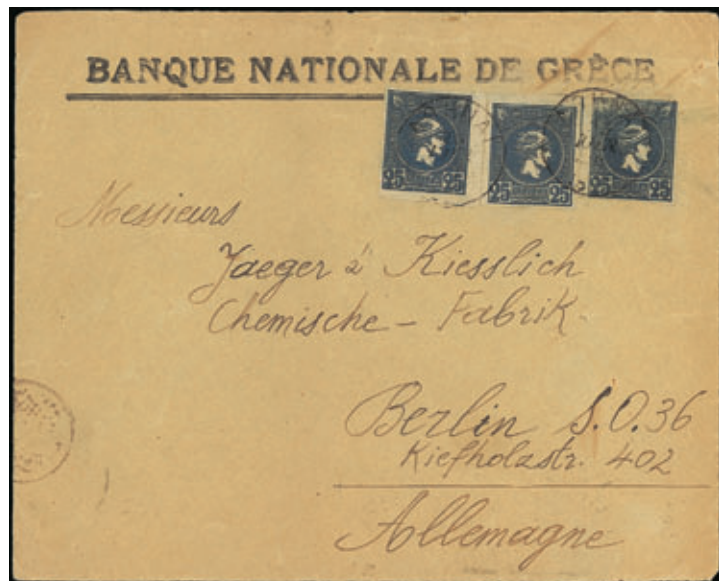 BANQUE NATIONALE DE GRÈCE
25 25 25 25 25 25
Messieurs
Jaeger & Kiesslich
Chemische - Fabrik.
Berlin S.O.36
Kiefholzstr. 402
Allemagne